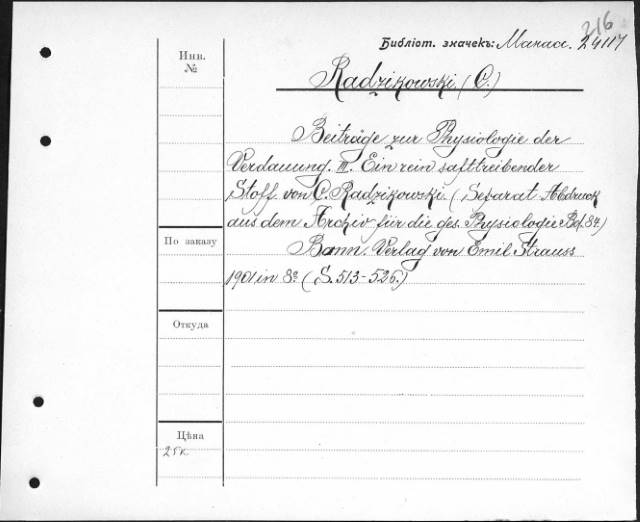 216
Библіот. значекъ: Манасс. 24117
Инв.
№
Radzikowski. (C.)
Beiträge zur Physiologie der
Verdauung. III. Ein rein safttreibender
Stoff. von C. Radzikowski. (Separat Abdruck
aus dem Archiv für die ges. Physiologie Bd. 84.)
По заказу
Bonn. Verlag von Emil Strauss
1901 in 8º (S. 513-526.)
Откуда
Цѣна
25к